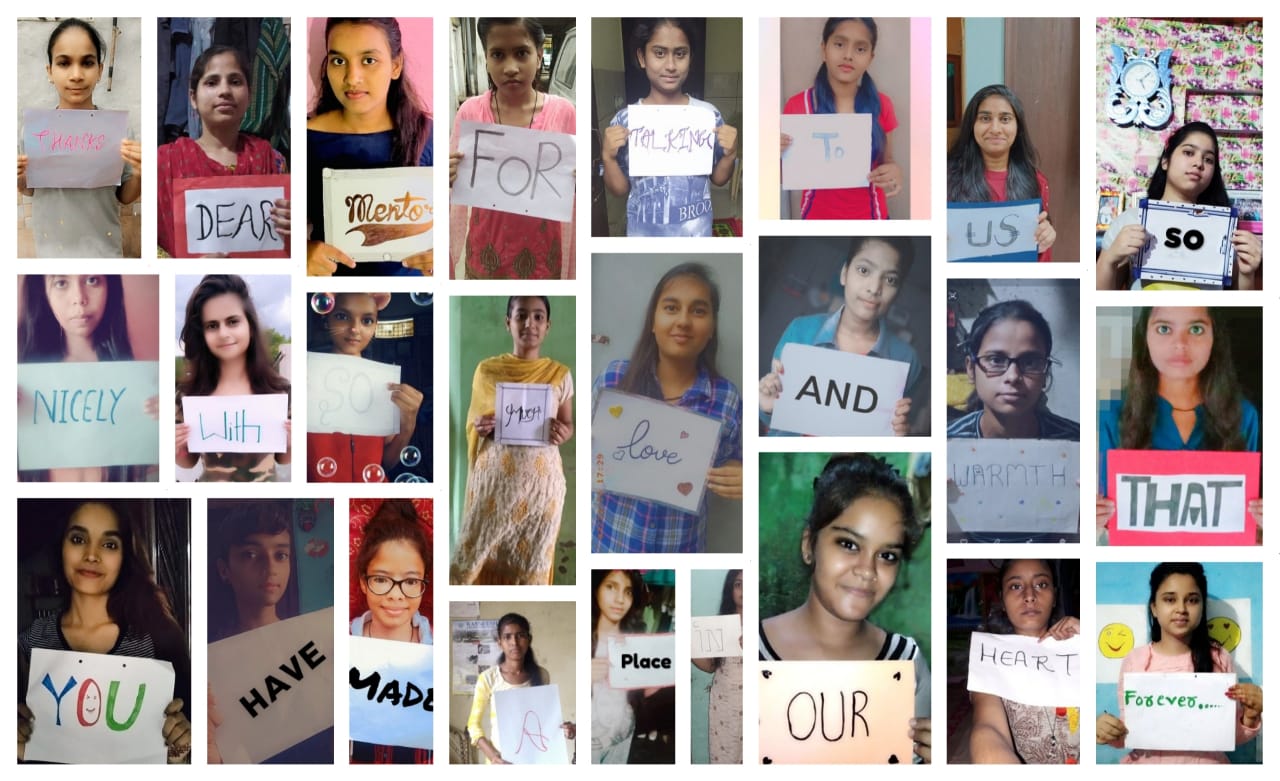 THANKS
DEAR
Mentor
FOR
TALKING
To
US
SO
NICELY
With
SO
MUCH
love
AND
WARMTH
THAT
YOU
HAVE
MADE
A
Place
IN
OUR
HEART
Forever.....
BROO
17:29